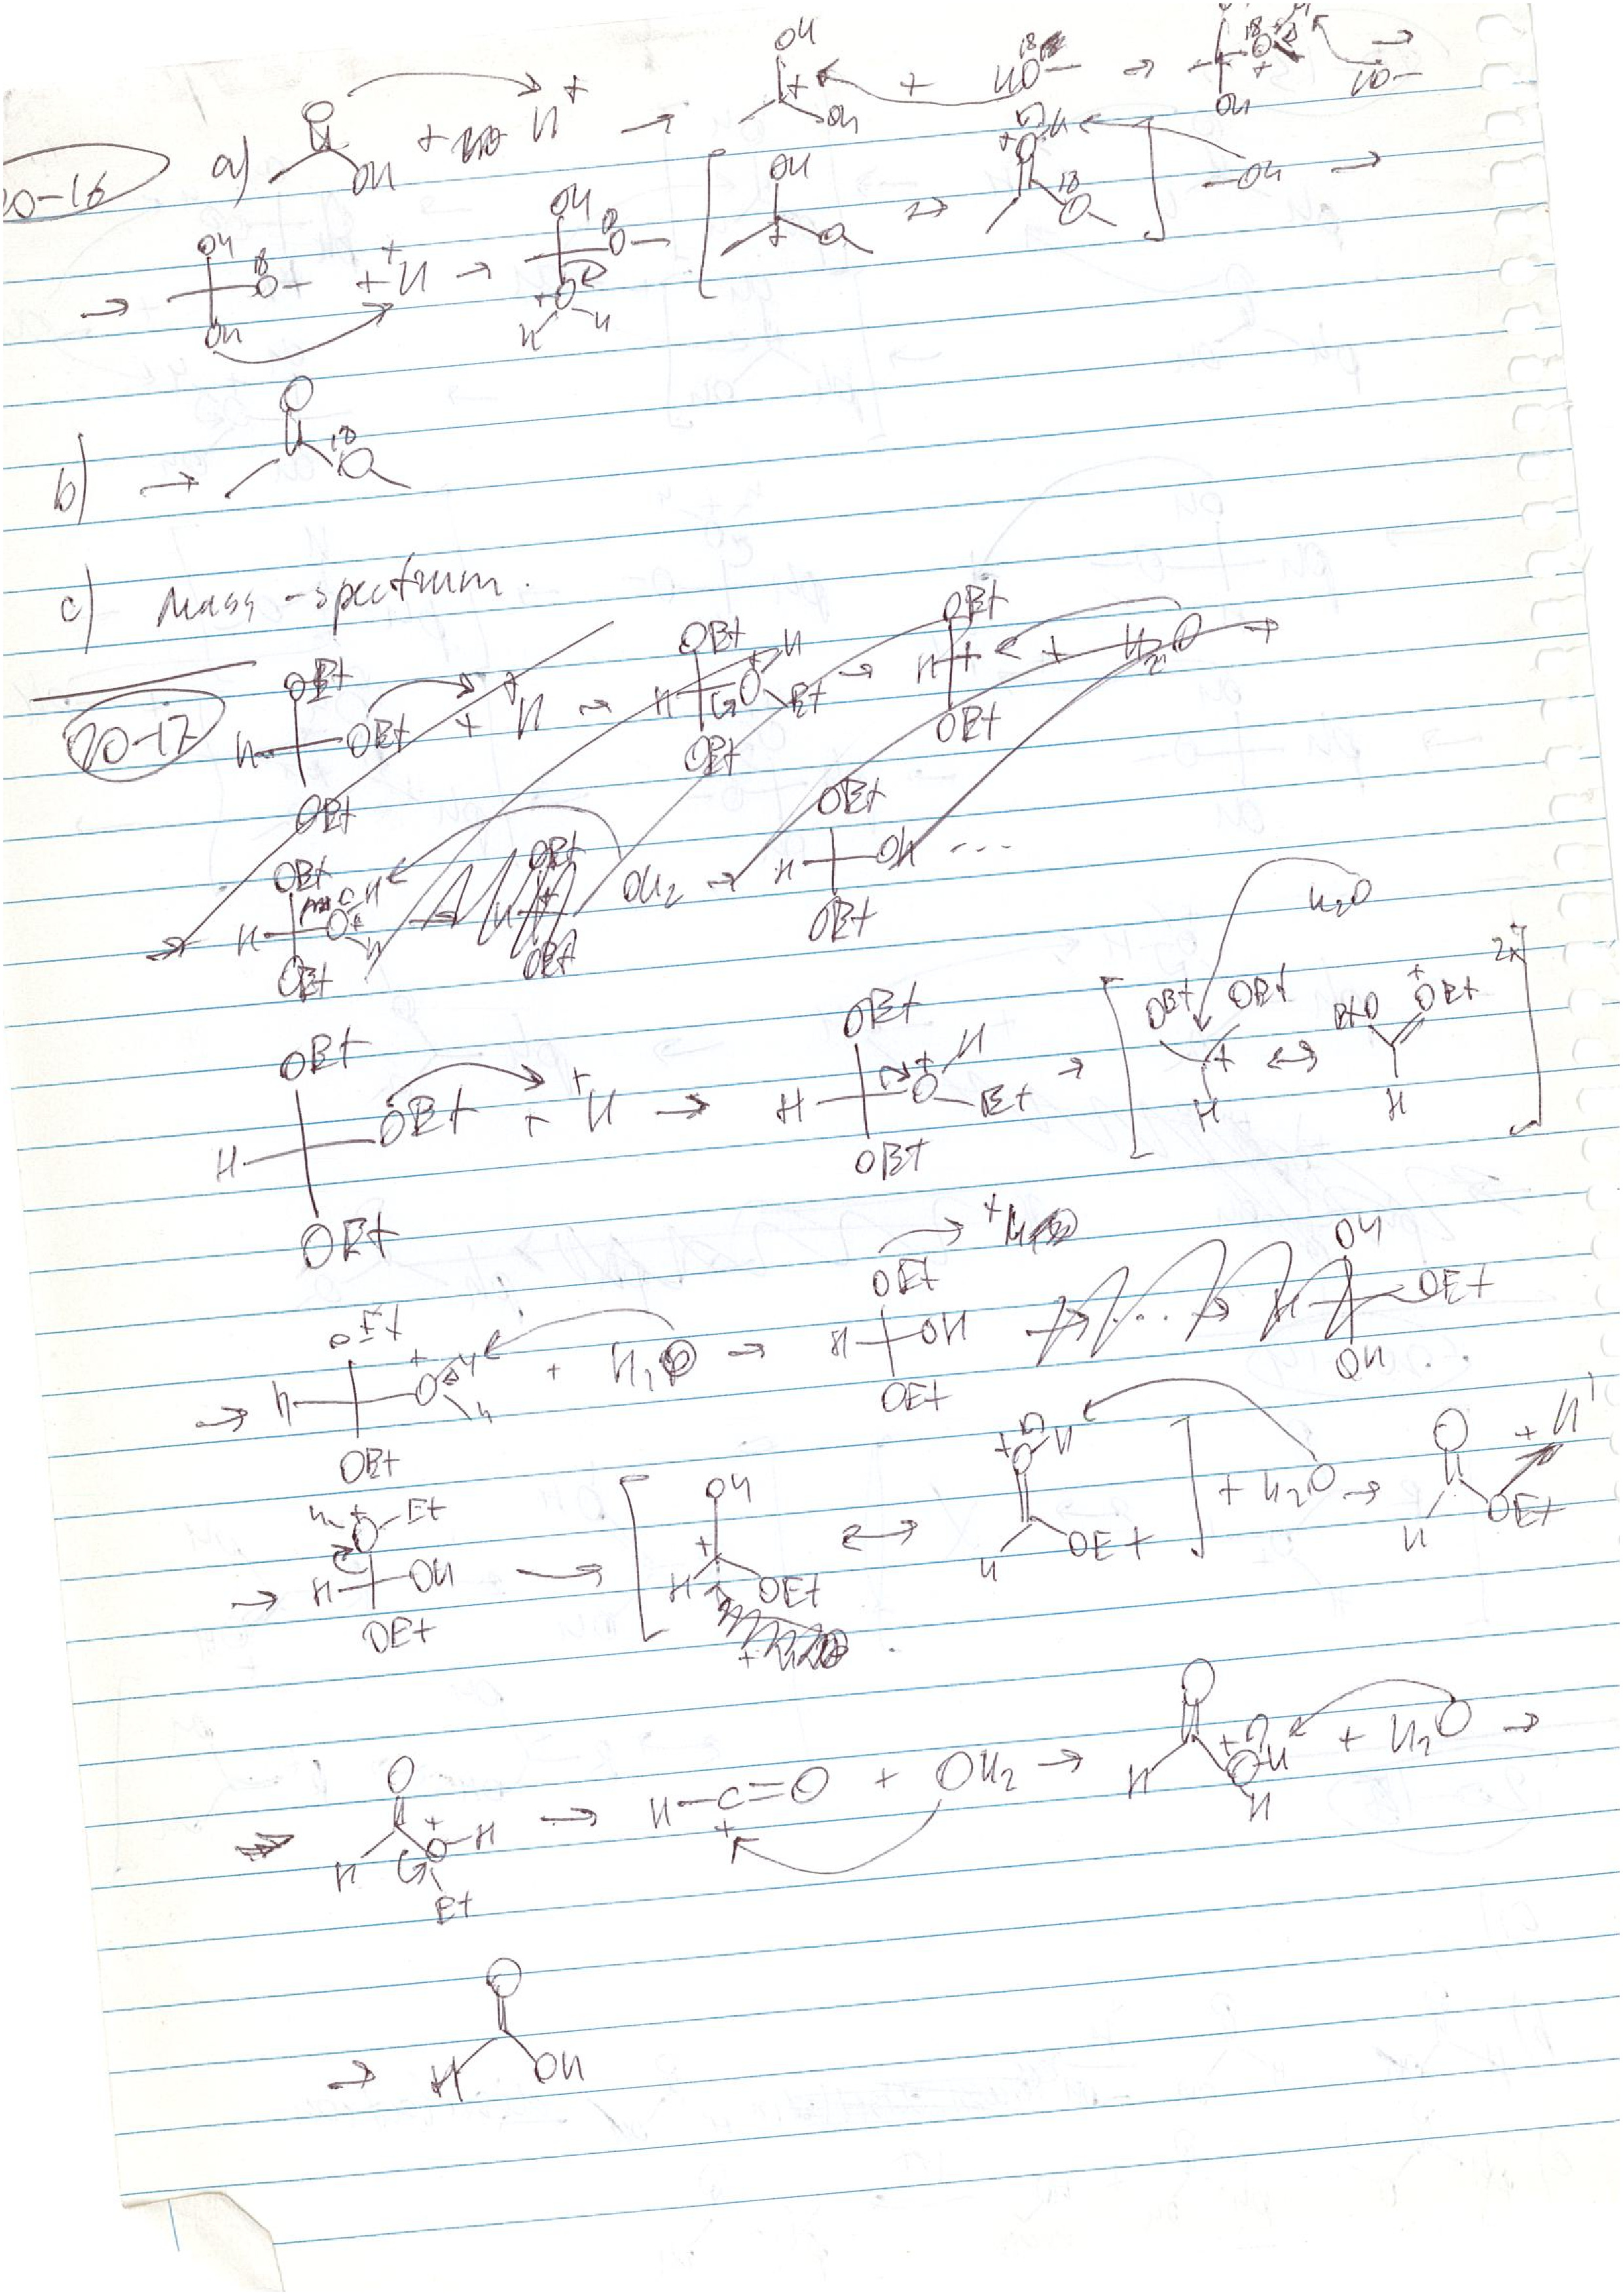 20-16 a) O OH + H+ → OH + OH + HO18 → 18O + OH HO →
→ OH 18O OH + +H → OH 18O +O H H [ OH + O ⇄ +O H 18 O ] OH →
b) → O 18 O
c) Mass-spectrum.
20-17 H OEt OEt OEt + +H → OEt H O+ H Et OEt → OEt H + OEt + H2O →
→ OEt H O+ H H OEt OH2 → OEt H OH OEt ...
H2O
OEt H OEt OEt + +H → OEt H O+ H Et OEt → [ OEt OEt + H ↔ EtO +OEt H ]
→ OEt H O+ H H OEt + H2O → OEt H OH OEt +H OH H OEt OH
→ H + O Et H OH OEt → [ OH + H OEt ↔ +O H H OEt ] + H2O → O H OEt + H+
O H O+ H Et → H-C=O + + OH2 → O H +O H H + H2O →
→ O H OH